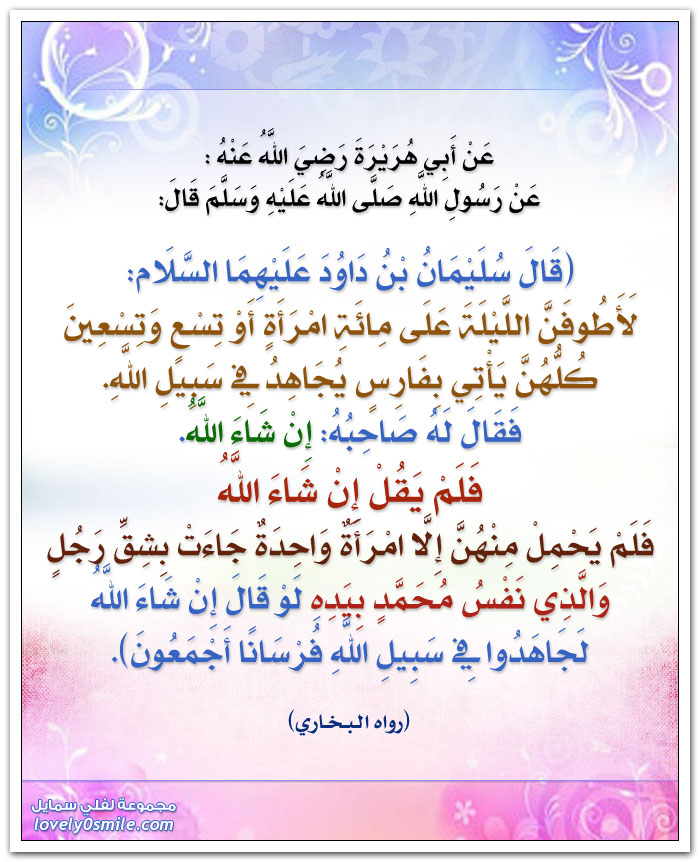 عَنْ أَبِي هُرَيْرَةَ رَضِيَ اللَّهُ عَنْهُ :
عَنْ رَسُولِ اللَّهِ صَلَّى اللَّهُ عَلَيْهِ وَسَلَّمَ قَالَ:
(قَالَ سُلَيْمَانُ بْنُ دَاوُدَ عَلَيْهِمَا السَّلَام:
لَأَطُوفَنَّ اللَّيْلَةَ عَلَى مِائَةِ امْرَأَةٍ أَوْ تِسْعٍ وَتِسْعِينَ
كُلُّهُنَّ يَأْتِي بِفَارِسٍ يُجَاهِدُ فِي سَبِيلِ اللَّهِ.
فَقَالَ لَهُ صَاحِبُهُ: إِنْ شَاءَ اللَّهُ.
فَلَمْ يَقُلْ إِنْ شَاءَ اللَّهُ
فَلَمْ يَحْمِلْ مِنْهُنَّ إِلَّا امْرَأَةٌ وَاحِدَةٌ جَاءَتْ بِشِقِّ رَجُلٍ
وَالَّذِي نَفْسُ مُحَمَّدٍ بِيَدِهِ لَوْ قَالَ إِنْ شَاءَ اللَّهُ
لَجَاهَدُوا فِي سَبِيلِ اللَّهِ فُرْسَانًا أَجْمَعُونَ).
(رواه البخاري)
مجموعة لفلي سمايل
lovely0smile.com